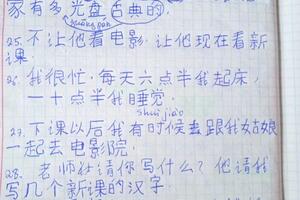 家有多光盘古典的.
guāng pán
25. 不让他看电影. 让他现在看新
课.
26. 我很忙. 每天六点半我起床,
一十点半我睡觉.
shuì jiào
27. 下课以后我有时候去跟我姑娘
一起去电影院.
28. 老师任请你写什么? 他请我
写几个新课的汉字.